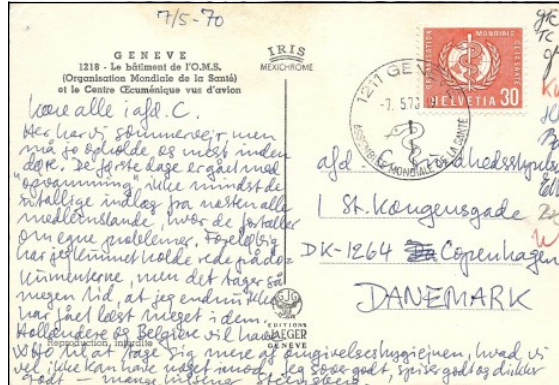 7/5-70
GENEVE
1218 - Le bâtiment de l'O.M.S.
(Organisation Mondiale de la Santé)
et le Centre Œcuménique vus d'avion
IRIS
MEXICHROME
Kære alle i afd. C.
Her har vi sommervejr, men
må jo opholde os mest inden
døre. De første dage er gået med
"opvarmning", ikke mindst de
utallige indlæg fra næsten alle
medlemslande, hvor de fortæller
om egne problemer. Foreløbig
har jeg kunnet holde rede på do-
kumenterne, men det tager så
megen tid, at jeg endnu ikke
har fået læst meget i dem.
Hollændere og Belgiere vil have
WHO til at tage sig mere af omgivelseshygiejnen, hvad vi
vel ikke kan have noget imod. Jeg sover godt, spiser godt og drikker
godt - mange hilsener
Reproduction interdite
EDITIONS
JAEGER
GENEVE
1211 GENEVE
-7.5.70
ASSEMBLEE MONDIALE DE LA SANTE
ORGANISATION MONDIALE DE LA SANTE
HELVETIA 30
afd. C
1 St. Kongensgade
DK-1264 Copenhagen
DANEMARK